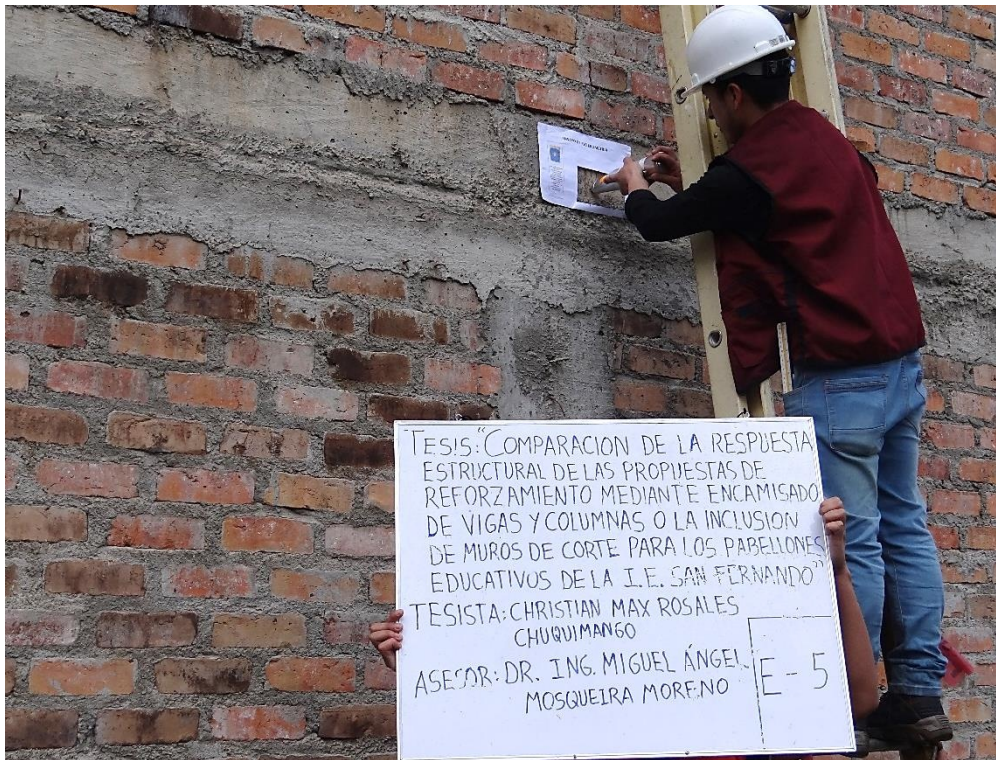 TESIS: "COMPARACION DE LA RESPUESTA
ESTRUCTURAL DE LAS PROPUESTAS DE
REFORZAMIENTO MEDIANTE ENCAMISADO
DE VIGAS Y COLUMNAS O LA INCLUSION
DE MUROS DE CORTE PARA LOS PABELLONES
EDUCATIVOS DE LA I.E. SAN FERNANDO"
TESISTA: CHRISTIAN MAX ROSALES
CHUQUIMANGO
ASESOR: DR. ING. MIGUEL ÁNGEL
MOSQUEIRA MORENO
E-5